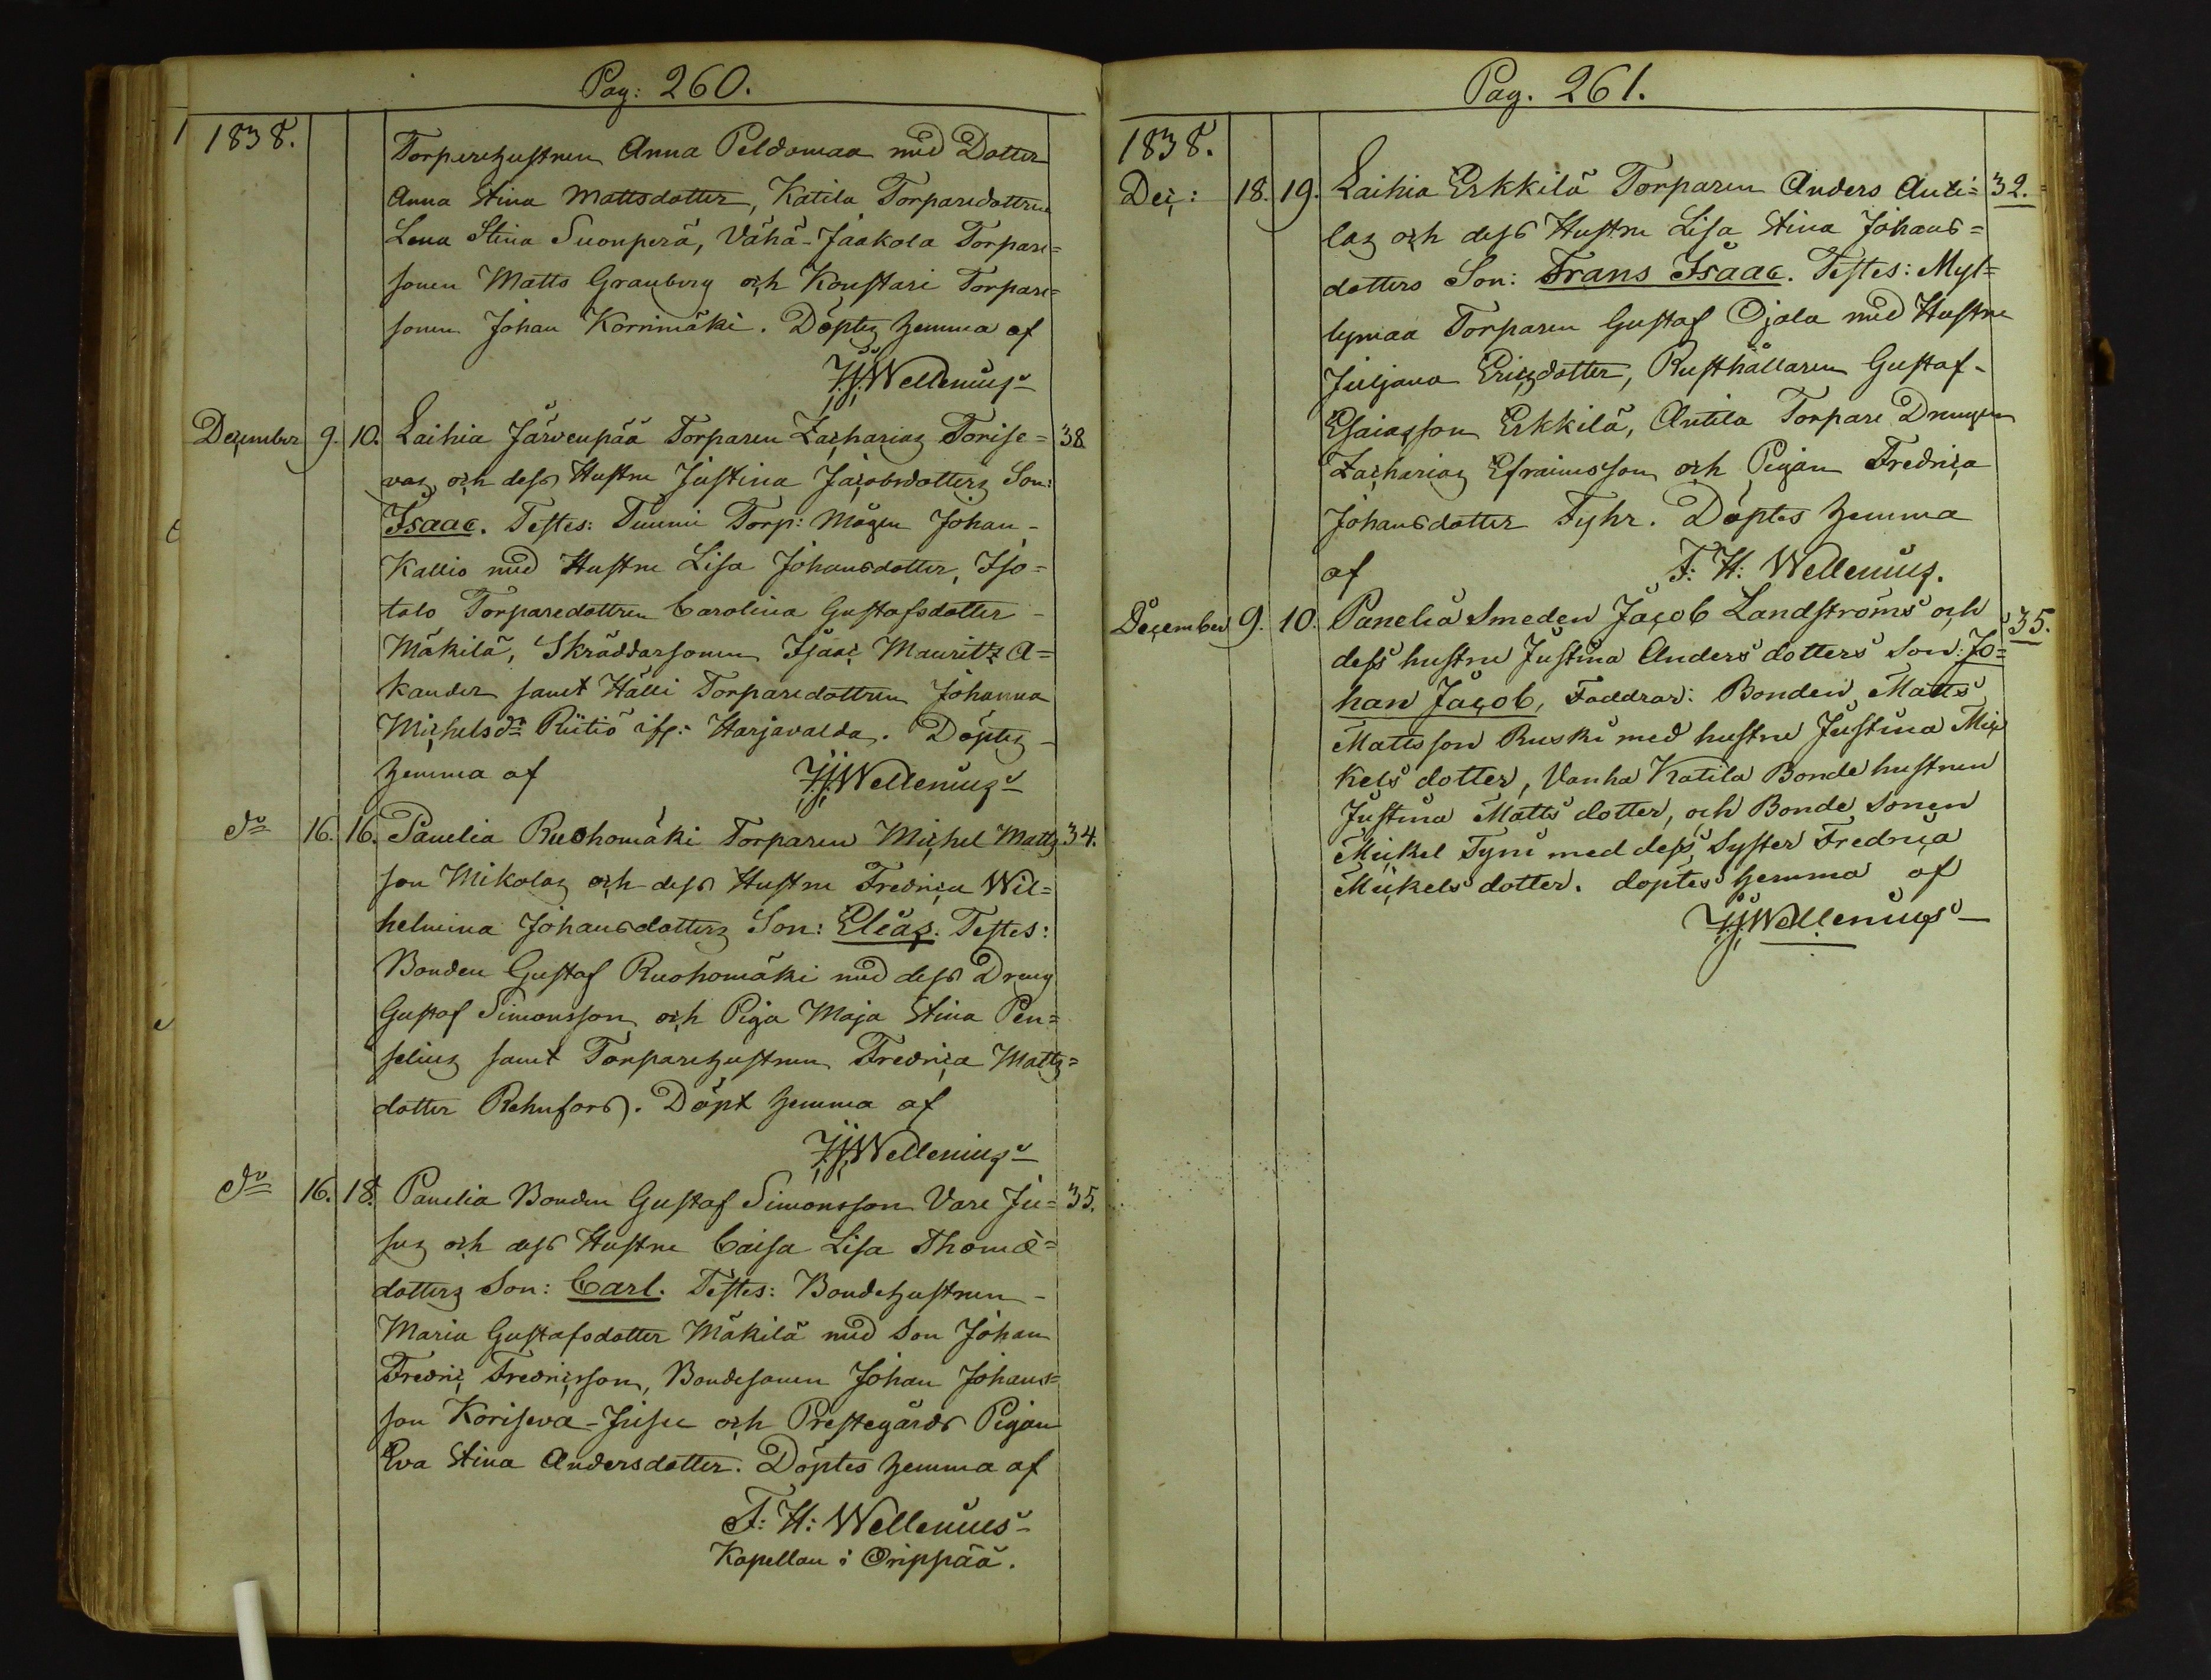 Pag: 260.
1838.
Torparehustrun Anna Peldomaa med Dotter
Anna Stina Mattsdotter, Katila Torparedottren
Lena Stina Suonperä, Vähä-Jaakola Torpare=
sonen Matts Granberg och Konstari Torpare=
sonen Johan Korrimäki. Döptes hemma af
F:H: Wellenius
December 9. 10. Laihia Järvenpää Torparen Zacharias Torise= 38
vas och dess Hustru Justina Jacobsdotters Son:
Isaac. Testes: Tuumi Torp: Mågen Johan
Kallio med Hustru Lisa Johansdotter, Iso=
talo Torparedottren Carolina Gustafsdotter
Mäkilä, Skräddarsonen Isaac Mauritz A=
kander samt Hälli Torparedottren Johanna
Michelsdr Riitiö if: Harjavalda. Döptes
hemma af F:H: Wellenius
do 16. 16. Panelia Ruohomäki Torparen Michel Matts 34.
son Mikolas och dess Hustru Fredrica Wil=
helmina Johansdotters Son: Elias. Testes:
Bonden Gustaf Ruohomäki med dess Dreng
Gustaf Simonsson och Piga Maja Stina Pen=
selius samt Torparehustrun Fredrica Matts=
dotter Rehnfors. Döpt hemma af
F:H: Wellenius
do 16. 18. Panelia Bonden Gustaf Simonsson Vare Ju= 35.
sus och dess Hustru Caisa Lisa Thomæ=
dotters Son: Carl. Testes: Bondehustrun
Maria Gustafsdotter Mäkilä med Son Johan
Fredric Fredricsson, Bondesonen Johan Johans=
son Koriseva-Jusu och Prestegårds Pigan
Eva Stina Andersdotter. Döptes hemma af
F: H: Wellenius
Kapellan i Orippää.
Pag. 261.
1838.
Dec: 18. 19. Laihia Erkkilä Torparen Anders Anti= 32.
las och dess Hustru Lisa Stina Johans=
dotters Son: Frans Isaac. Testes: Myl=
lymaa Torparen Gustaf Ojala med Hustru
Juljana Ericsdotter, Rusthållaren Gustaf
Esaiasson Erkkilä, Antila Torpare Drengen
Zacharias Efraimsson och Pigan Fredrica
Johansdotter Fyhr. Döptes hemma
af F: H: Wellenius.
December 9. 10. Panelia Smeden Jacob Landströms och 35.
dess hustru Justina Anders dotters Son: Jo=
han Jacob, Faddrar: Bonden Matts
Mattsson Ruski med hustru Justina Mic
kels dotter, Vanha Katila Bonde hustrun
Justina Matts dotter, och Bonde Sonen
Mickel Tyni med dess Syster Fredrica
Mickels dotter. döptes hemma af
F:H: Wellenius